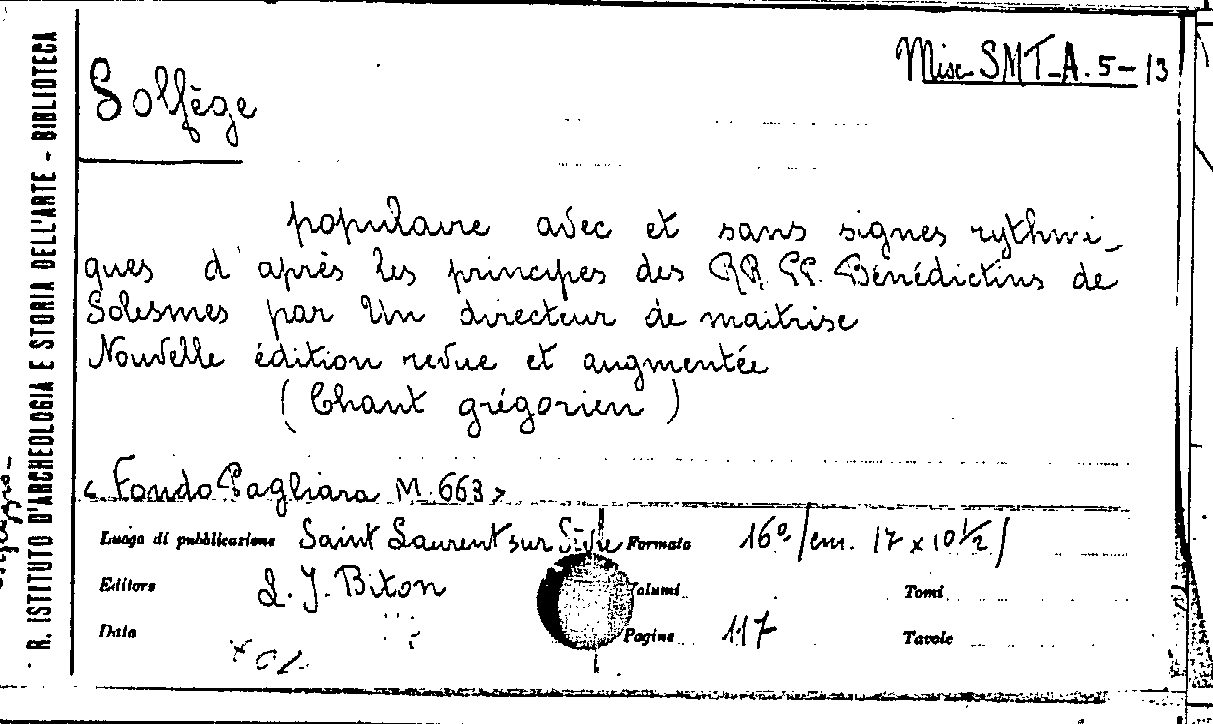 R. ISTITUTO D'ARCHEOLOGIA E STORIA DELL'ARTE - BIBLIOTECA
Misc SMT-A.5-13
Solfège
populaire avec et sans signes rythmi-
ques d'après les principes des RR. PP. Bénédictins de
Solesmes par Un directeur de maitrise
Nouvelle édition revue et augmentée
(Chant grégorien)
< Fondo Pagliara M. 663 >
Luogo di pubblicazione Saint Laurent sur Sèvre Formato 16º/cm. 17 x 10 ½/
Editore L. J. Biton Volumi Tomi
Data Pagine 117 Tavole